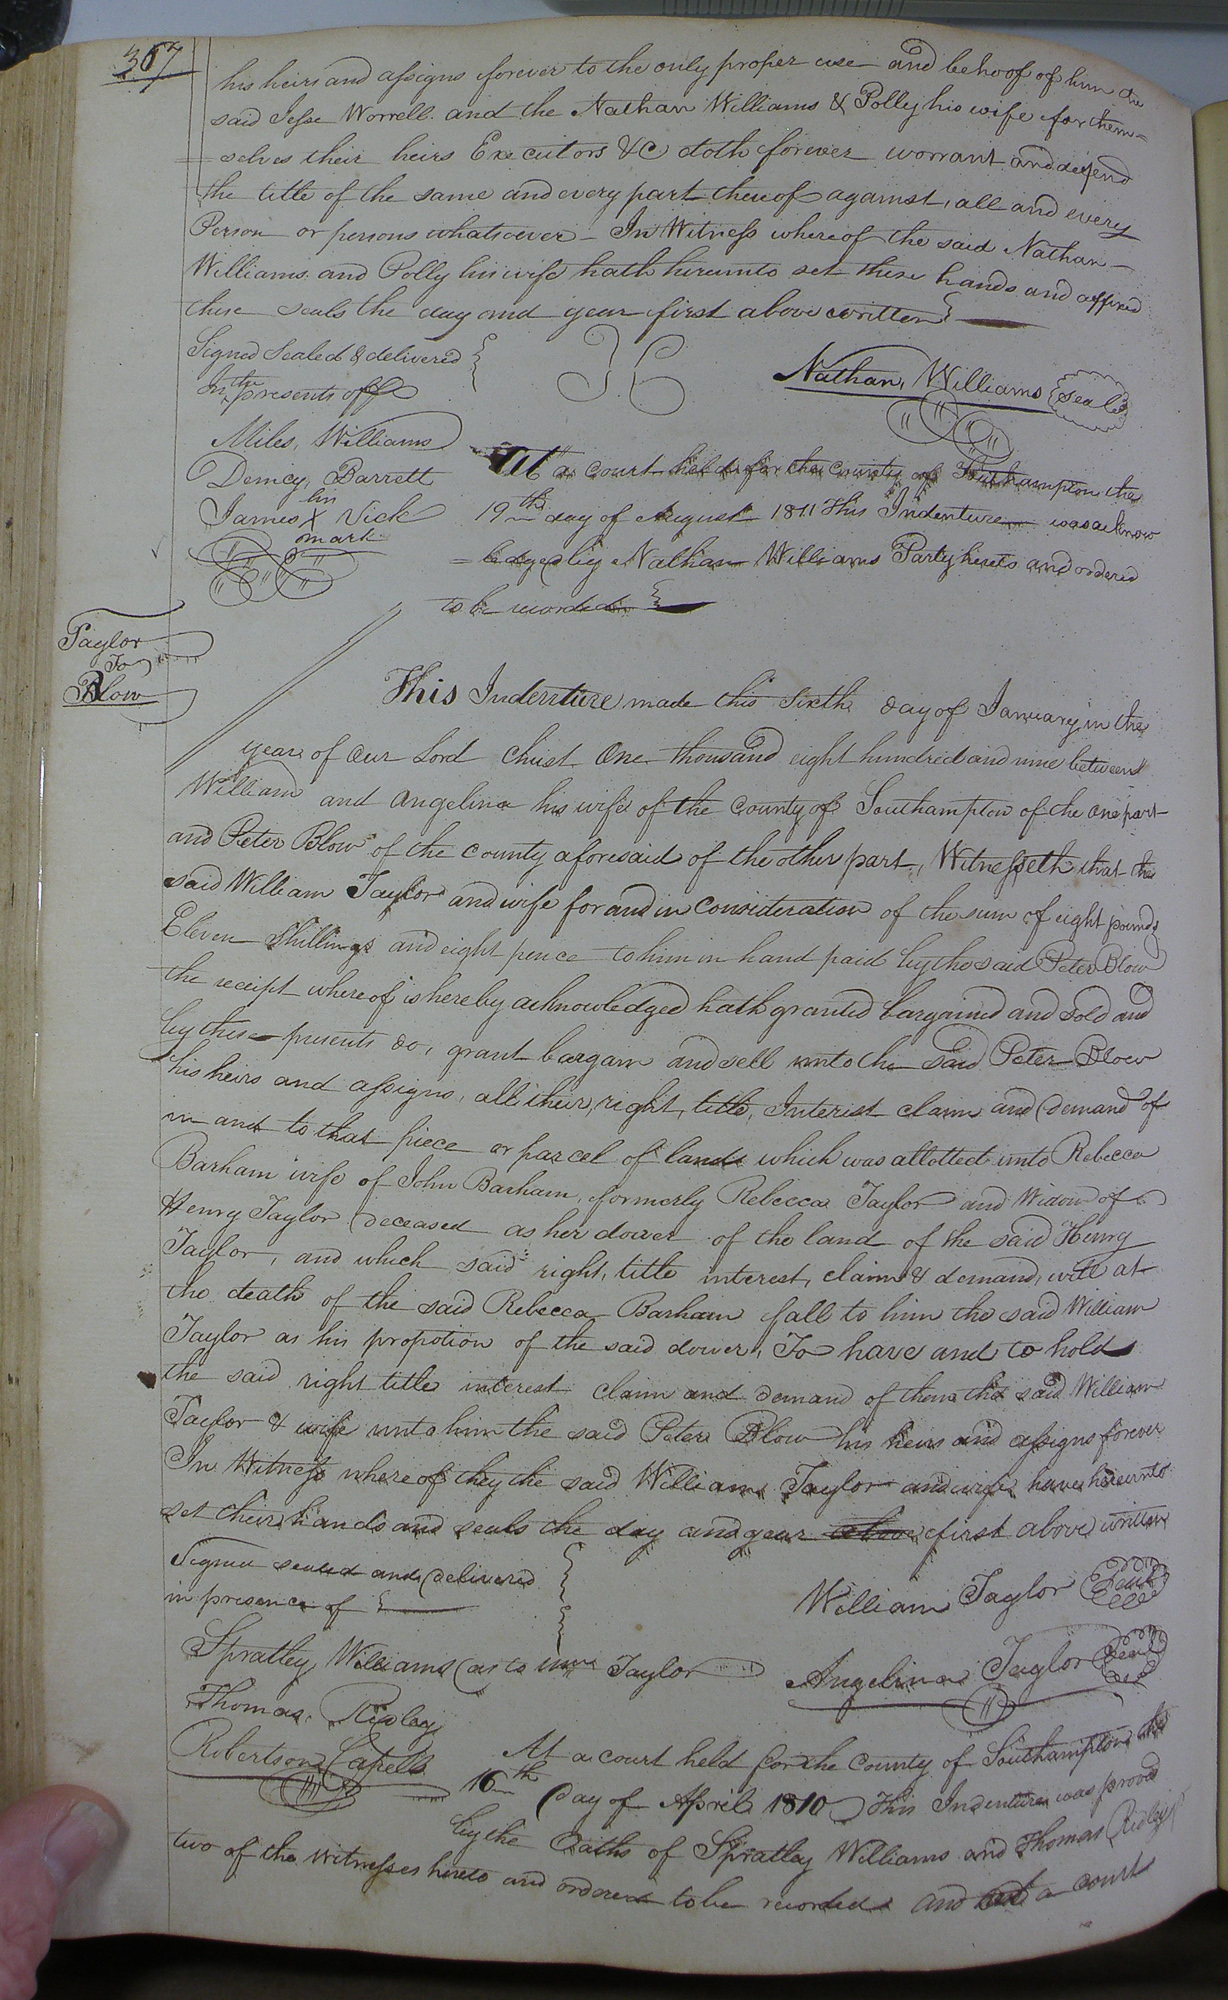 367
his heirs and assigns forever to the only proper use and behoof of him the
said Jesse Worrell. and the Nathan Williams & Polly his wife for them=
=selves their heirs Executors &C doth forever worrant and defend
the title of the same and every part thereof against, all and every
Person or persons whatsoever – In Witness whereof the said Nathan
Williams. and Polly his wife hath hereunto set these hands and affixed
these seals the day and year first above written
Signed Sealed & delivered
In the presents off
Nathan, Williams seal
Miles, Williams
Demcy, Barrett
James his X Vick
mark
At a court held for the county of Southampton the
19th day of August 1811 This Indenture was acknow
=ledged by Nathan Williams Party hereto and ordered
to be recorded
Taylor
To
Blow
This Indenture made this sixth day of January in the
year of our Lord Christ One thousand eight hundred and nine between
William and Angelina his wife of the County of Southampton of the one part
and Peter Blow of the county aforesaid of the other part, Witnesseth that the
said William Taylor and wife for and in consideration of the sum of eight pounds
Eleven Shillings and eight pence to him in hand paid by the said Peter Blow
the receipt whereof is hereby acknowledged hath granted bargained and sold and
by these presents do, grant bargain and sell unto the said Peter Blow
his heirs and assigns, all their, right, title, Interest claim and demand of
in and to that piece or parcel of lands which was allotted unto Rebecca
Barham wife of John Barham, formerly Rebecca Taylor and Widow of
Henry Taylor deceased as her dower of the land of the said Henry
Taylor, and which said right, title interest, claim & demand, will at
the death of the said Rebecca Barham fall to him the said William
Taylor as his propotion of the said dower, To have and to hold
the said right title interest claim and demand of them the said William
Taylor & wife unto him the said Peter Blow his heirs and assigns forever
In Witness whereof they the said William Taylor and wife, have hereunto
set their hands and seals the day and year above first above written
Signed sealed and delivered
in presence of
William Taylor Seal
Spratley, Williams (as to Taylor
Angelina Taylor Seal
Thomas, Ridley
Robertson Capell
At a court held for the County of Southampton the
16th day of April 1810 This Indenture was proved
by the Oaths of Spratley Williams and Thomas Ridley
two of the Witnesses hereto and ordered to be recorded and at a court